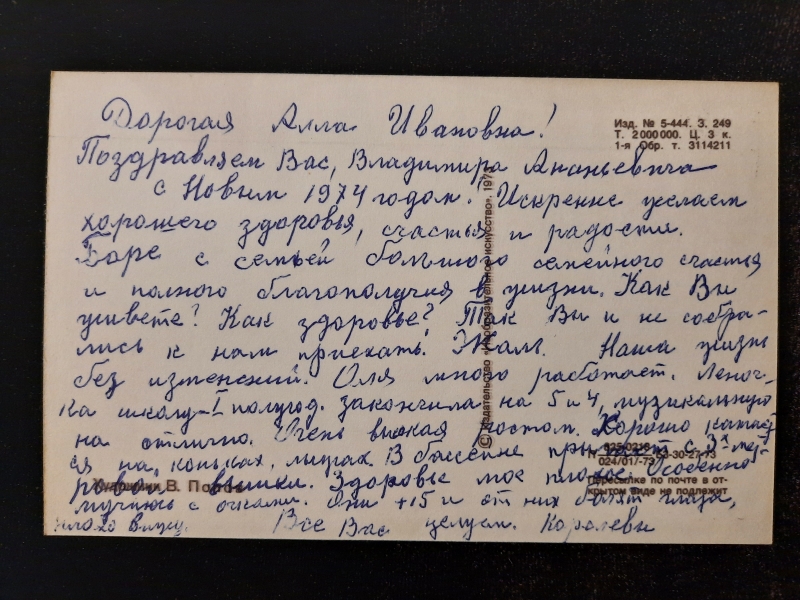 Дорогая Алла Ивановна!
Изд. № 5-444. З. 249
Т. 2000000. Ц. 3 к.
1-я Обр. т. 3114211
Поздравляем Вас, Владимира Ананьевича
с Новым 1974 годом. Искренне желаем
хорошего здоровья, счастья и радости.
Боре с семьей большого семейного счастья
и полного благополучия в жизни. Как Вы
живете? Как здоровье? Так Вы и не собра-
лись к нам приехать. Жаль. Наша жизнь
без изменений. Оля много работает. Леноч-
ка школу-I полугод. закончила на 5 и 4, музикальную
на отлично. Очень высокая ростом. Хорошо катает
ся на коньках, лыжах. В бассейне с 3х мет-
ровой вышки. Здоровье мое плохое. Особенно
мучаюсь с очками. Они +15 и от них болят глаза,
плохо вижу. Все Вас целуем. Королевы
© Издательство «Изобразительное искусство». 1973
Художник В.
024/01/-73 53-30-27-73
Пересылке по почте в от-
крытом виде не подлежит